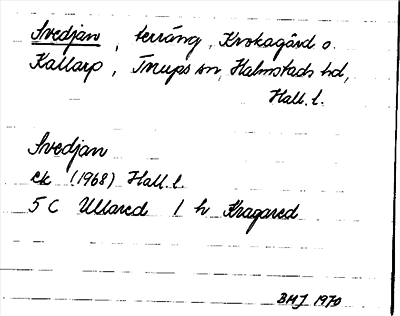 Svedjan, terräng, Krokagård o.
Kallarp, Snups sn, Halmstads hd,
Hall. l.
Svedjan
ek (1968) Hall. l.
5 C Ullared 1 h Kragared
BMJ 1970